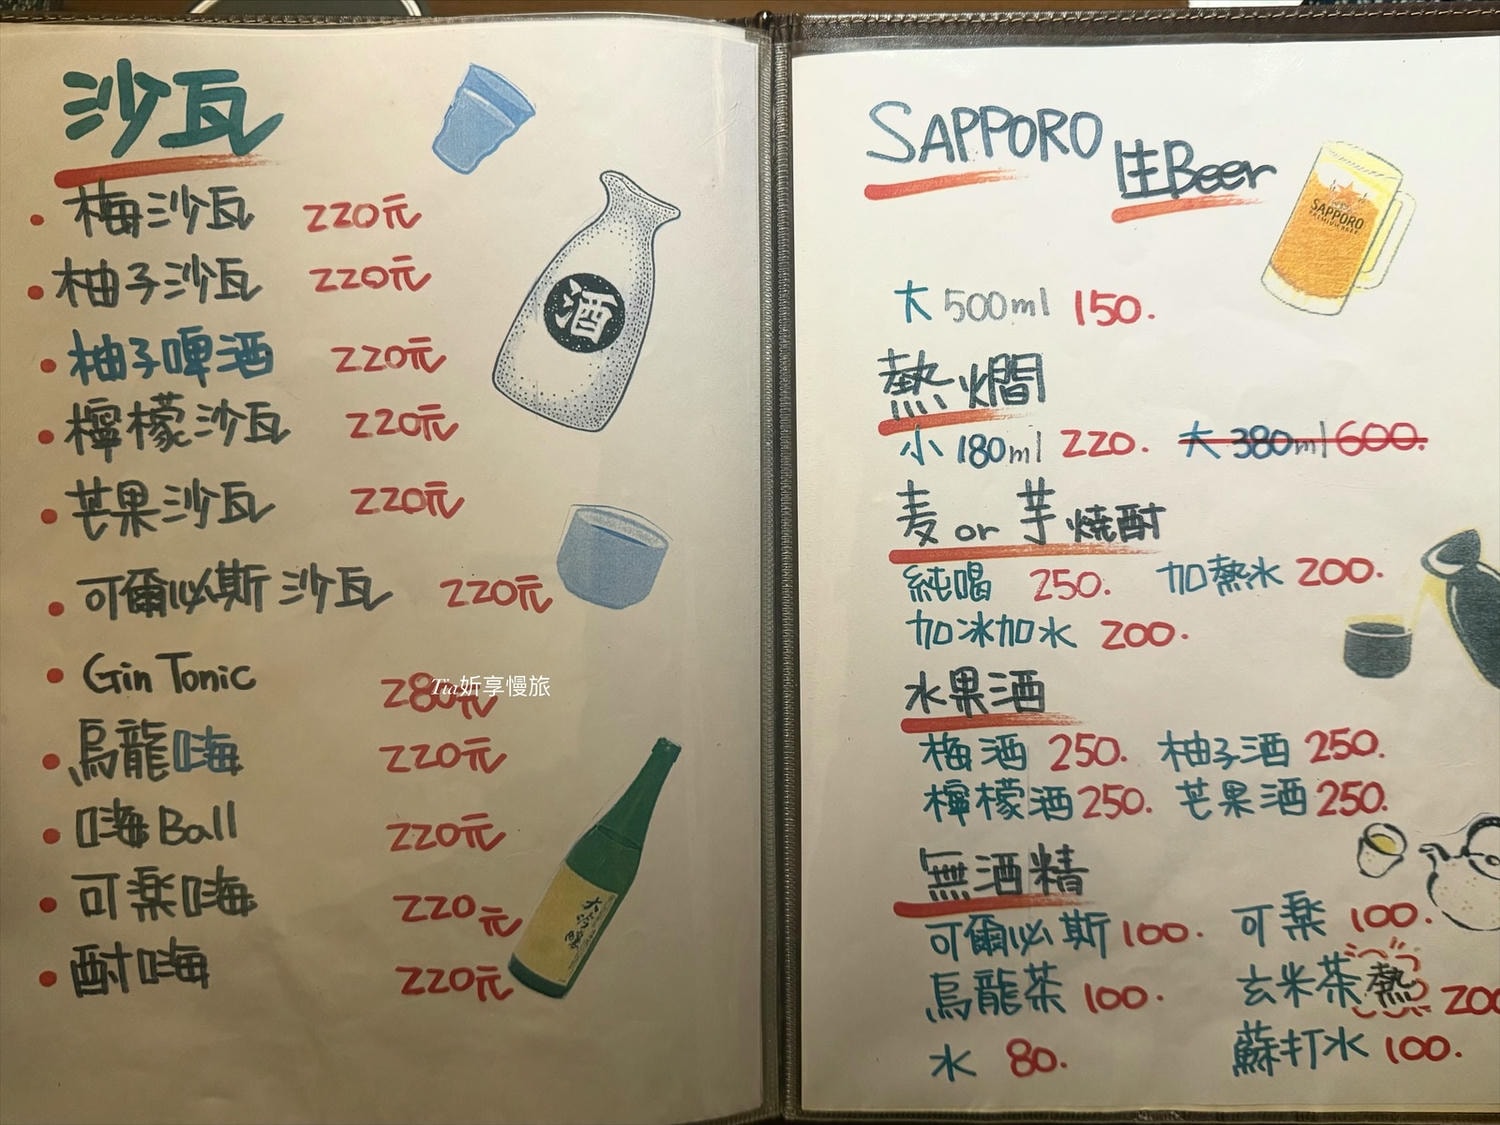 沙瓦
梅沙瓦 220元
柚子沙瓦 220元
柚子啤酒 220元
檸檬沙瓦 220元
芒果沙瓦 220元
可爾必斯沙瓦 220元
Gin Tonic 280元
烏龍嗨 220元
嗨Ball 220元
可樂嗨 220元
酎嗨 220元
酒
大吟釀
Tia妡享慢旅
SAPPORO 生Beer
SAPPORO
大 500ml 150.
熱燗
小 180ml 220. 大 380ml 600.
麦 or 芋 燒酎
純喝 250. 加熱水 200.
加冰加水 200.
水果酒
梅酒 250. 柚子酒 250.
檸檬酒 250. 芒果酒 250.
無酒精
可爾必斯 100. 可樂 100.
烏龍茶 100. 玄米茶熱 200
水 80. 蘇打水 100.